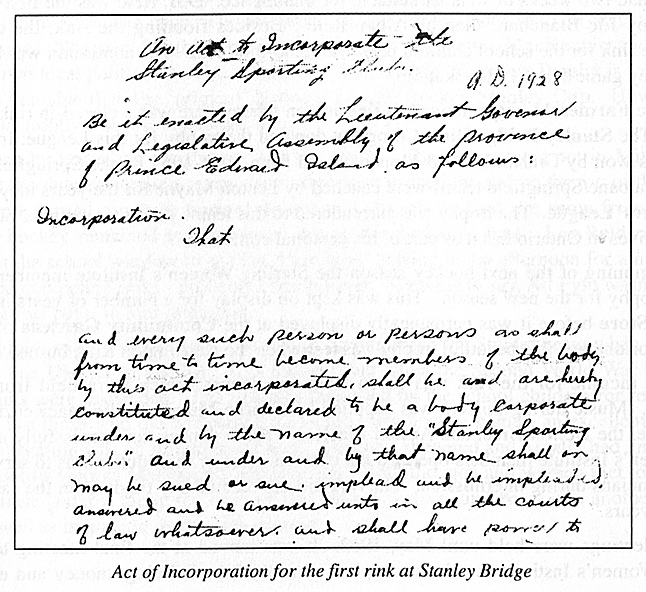 An act to Incorporate the
Stanley Sporting Club.
A.D. 1928
Be it enacted by the Lieutenant Govenor
and Legislative Assembly of the province
of Prince Edward Island as follows:
Incorporation
That
and every such person or persons as shall
from time to time become members of the body
by this act incorporated, shall be and are hereby
constituted and declared to be a body corporate
under and by the name of the "Stanley Sporting
Club" and under and by that name shall or
may be sued or sue, implead and be impleaded
answered and be answered unto in all the courts
of law whatsoever. and shall have power to
Act of Incorporation for the first rink at Stanley Bridge